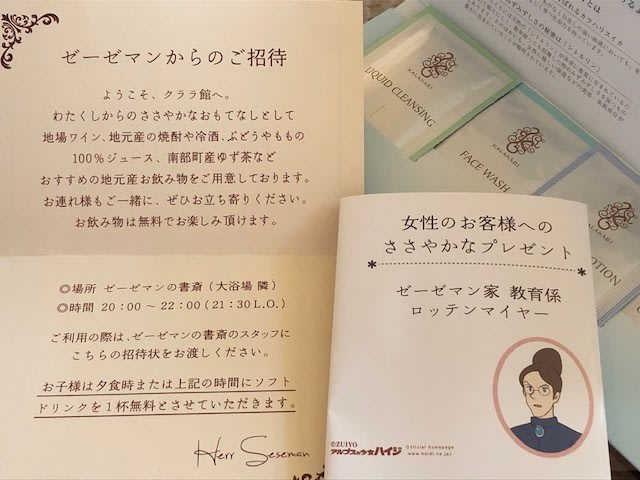 ゼーゼマンからのご招待
ようこそ、クララ館へ。
わたくしからのささやかなおもてなしとして
地場ワイン、地元産の焼酎や冷酒、ぶどうやももの
100%ジュース、南部町産ゆず茶など
おすすめの地元産お飲み物をご用意しております。
お連れ様もご一緒に、ぜひお立ち寄りください。
お飲み物は無料でお楽しみ頂けます。
◎場所 ゼーゼマンの書斎(大浴場 隣)
◎時間 20:00～22:00(21:30L.O.)
ご利用の際は、ゼーゼマンの書斎のスタッフに
こちらの招待状をお渡しください。
お子様は夕食時または上記の時間にソフト
ドリンクを1杯無料とさせていただきます。
Herr Seseman
女性のお客様への
ささやかなプレゼント
ゼーゼマン家 教育係
ロッテンマイヤー
©ZUIYO
アルプスの少女ハイジ
Official homepage
www.heidi.ne.jp/
KALAHARI
LIQUID CLEANSING
KALAHARI
FACE WASH
KALAHARI
LOTION